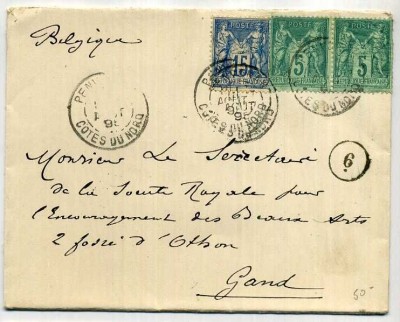 Belgique
POSTES
15
5
5
COTES DU NORD
COTES DU NORD
9
Monsieur Le Secrétaire
de la Société Royale pour
l'Encouragement des Beaux Arts
2 fossé d'Othon
Gand
50